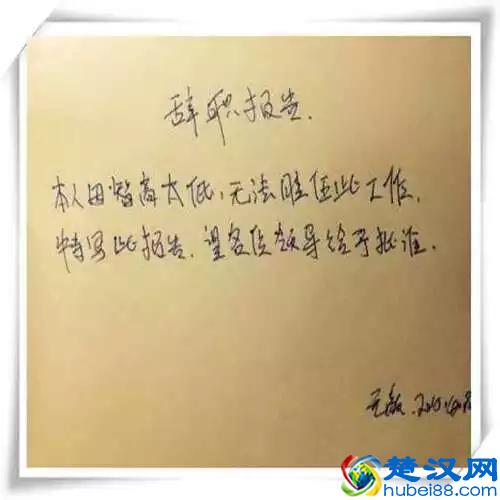 辞职报告.
本人因智商太低,无法胜任此工作,
特写此报告,望各位领导给予批准.
楚汉网
hubei88.com